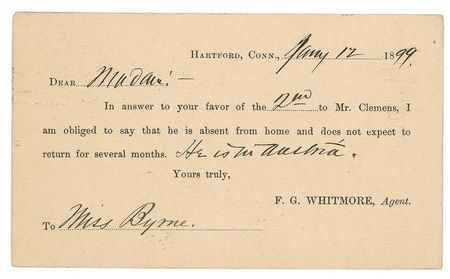 HARTFORD, CONN., Jany 12 1899.
DEAR Madam:—
In answer to your favor of the 2nd to Mr. Clemens, I
am obliged to say that he is absent from home and does not expect to
return for several months. He is in Austria.
Yours truly,
F. G. WHITMORE, Agent.
To Miss Byrne.